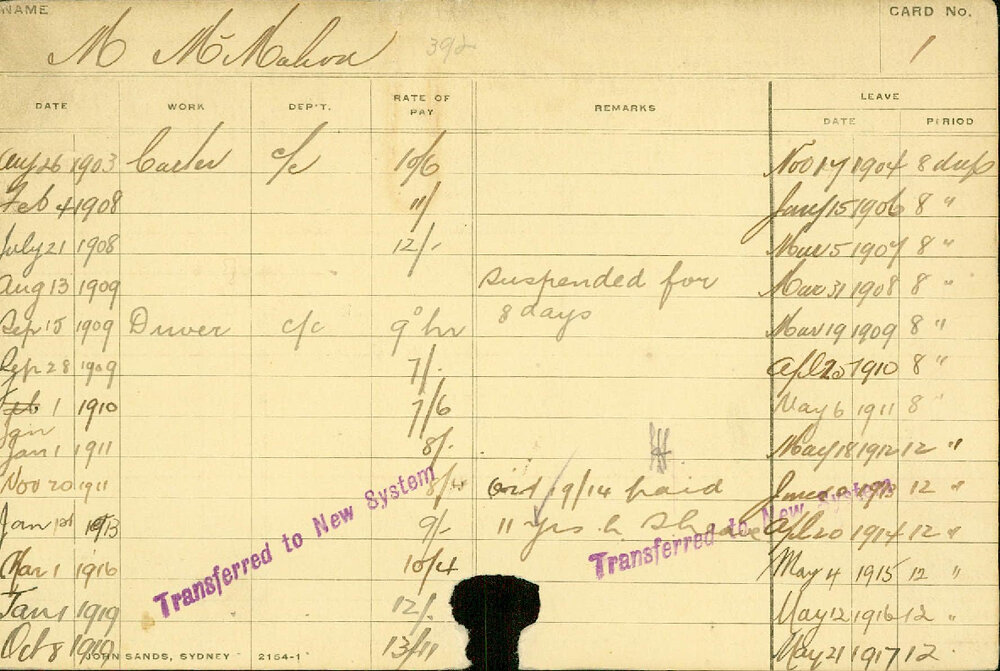 NAME M McMahon 39/2 CARD No. 1
DATE WORK DEP'T. RATE OF PAY REMARKS LEAVE
DATE PERIOD
Aug 26 1903 Carter c/c 10/6 Nov 17 1904 8 days
Feb 4 1908 11/ Jany 15 1906 8 "
July 21 1908 12/- Mar 5 1907 8 "
Aug 13 1909 suspended for Mar 31 1908 8 "
8 days
Sep 15 1909 Driver c/c 9° hr Mar 19 1909 8 "
Sep 28 1909 7/- Apl 25 1910 8 "
Feb 1 1910 7/6 May 6 1911 8 "
Jan
Jan 1 1911 8/- May 18 1912 12 "
Nov 20 1911 8/4 19/14 paid June 1913 12 "
Jan 1st 1913 9/- 11 yrs Apl 20 1914 12 "
Mar 1 1916 10/4 May 4 1915 12 "
Jan 1 1919 12/- May 12 1916 12 "
Oct 8 1919 13/11 May 21 1917 12
Transferred to New System
Transferred to New System
JOHN SANDS, SYDNEY 2154-1